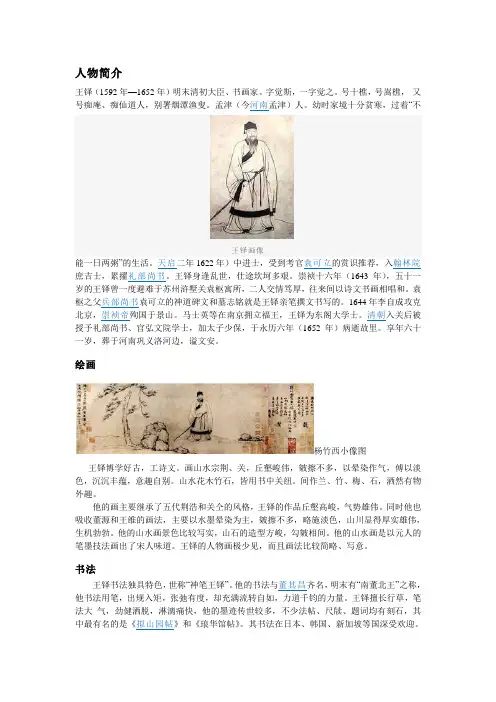 人物简介
王铎（1592年—1652年）明末清初大臣、书画家。字觉斯，一字觉之。号十樵，号嵩樵， 又
号痴庵、痴仙道人，别署烟潭渔叟。孟津（今河南孟津）人。幼时家境十分贫寒，过着“不
王铎画像
能一日两粥”的生活。天启二年1622年）中进士，受到考官袁可立的赏识推荐，入翰林院
庶吉士，累擢礼部尚书。王铎身逢乱世，仕途坎坷多艰。崇祯十六年（1643 年），五十一
岁的王铎曾一度避难于苏州浒墅关袁枢寓所，二人交情笃厚，往来间以诗文书画相唱和。袁
枢之父兵部尚书袁可立的神道碑文和墓志铭就是王铎亲笔撰文书写的。1644年李自成攻克
北京，崇祯帝殉国于景山。马士英等在南京拥立福王，王铎为东阁大学士。清朝入关后被
授予礼部尚书、官弘文院学士，加太子少保，于永历六年（1652 年）病逝故里。享年六十
一岁，葬于河南巩义洛河边，谥文安。
绘画
杨竹西小像图
王铎博学好古，工诗文。画山水宗荆、关，丘壑峻伟，皴擦不多，以晕染作气，傅以淡
色，沉沉丰蕴，意趣自别。山水花木竹石，皆用书中关纽。间作兰、竹、梅、石，洒然有物
外趣。
他的画主要继承了五代荆浩和关仝的风格，王铎的作品丘壑高峻，气势雄伟。同时他也
吸收董源和王维的画法，主要以水墨晕染为主，皴擦不多，略施淡色，山川显得厚实雄伟，
生机勃勃。他的山水画景色比较写实，山石的造型方峻，勾皴相间。他的山水画是以元人的
笔墨技法画出了宋人味道。王铎的人物画极少见，而且画法比较简略、写意。
书法
王铎书法独具特色，世称“神笔王铎”。他的书法与董其昌齐名，明末有“南董北王”之称，
他书法用笔，出规入矩，张弛有度，却充满流转自如，力道千钧的力量。王铎擅长行草，笔
法大 气，劲健洒脱，淋漓痛快，他的墨迹传世较多，不少法帖、尺牍、题词均有刻石，其
中最有名的是《拟山园帖》和《琅华馆帖》。其书法在日本、韩国、新加坡等国深受欢迎。